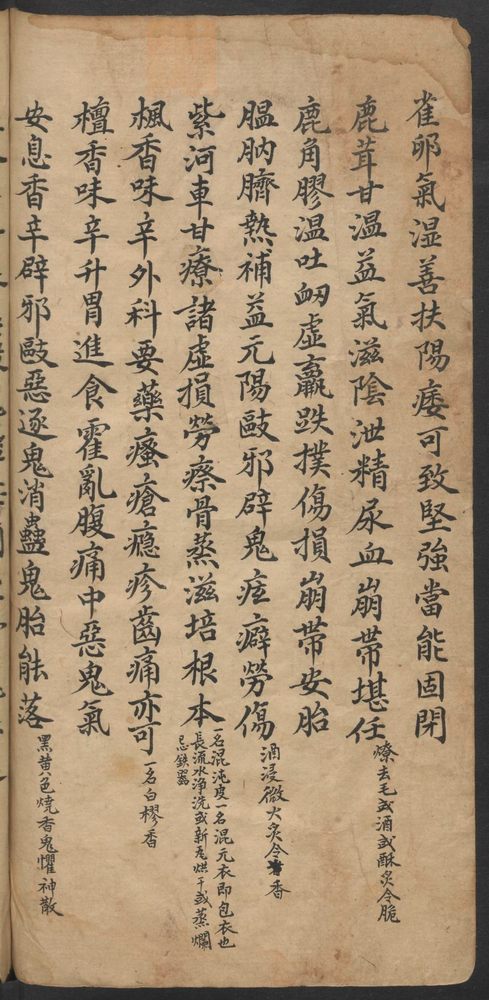 雀卵氣溫善扶陽痿可致堅強當能固閉
鹿茸甘溫益氣滋陰泄精尿血崩帶堪任
燎去毛或酒或酥炙令脆
鹿角膠溫吐衂虛羸跌撲傷損崩帶安胎
腽肭臍熱補益元陽敺邪辟鬼痃癖勞傷
酒浸微火炙令香
紫河車甘療諸虛損勞瘵骨蒸滋培根本
一名混沌皮一名混元衣即包衣也
長流水净洗或新瓦烘干或蒸爛
忌鉄器
楓香味辛外科要藥瘙瘡癮疹齒痛亦可
一名白膠香
檀香味辛升胃進食霍亂腹痛中惡鬼氣
安息香辛辟邪敺惡逐鬼消蠱鬼胎能落
黑黄色燒香鬼懼神散